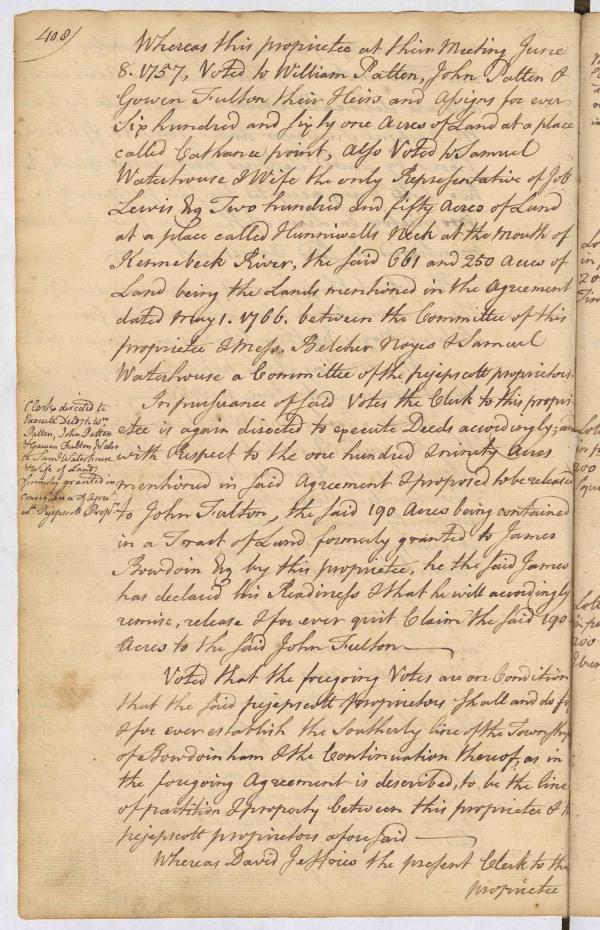 408/
Whereas this proprietee at their Meeting June
8. 1757, Voted to William Patten, John Patten &
Gowen Fulton their Heirs and Assigns for ever
Six hundred and sixty one Acres of Land at a place
called Cathance point, Also Voted to Samuel
Waterhouse & Wife the only Representative of Job
Lewis Esq Two hundred and fifty Acres of Land
at a place called Hunniwells Neck at the Mouth of
Kennebeck River, the said 661 and 250 Acres of
Land being the Lands mentioned in the Agreement
dated May 1. 1766. between the Committee of this
proprietee & Mess. Belcher Noyes & Samuel
Waterhouse a Committee of the pejepscott proprietors.
In pursuance of said Votes the Clerk to this propri-
etee is again directed to execute Deeds accordingly; and
with Respect to the one hundred & ninety Acres
mentioned in said Agreement & proposed to be released
to John Fulton, the said 190 Acres being contained
in a Tract of Land formerly granted to James
Bowdoin Esq by this proprietee, he the said James
has declared his Readiness & that he will accordingly
remise, release & for ever quit Claim the said 190
Acres to the said John Fulton
Voted that the foregoing Votes are on Condition
that the said pejepscott proprietors shall and do for
& for ever establish the Southerly line of the Township
of Bowdoinham & the Continuation thereof, as in
the foregoing Agreement is described, to be the line
of partition & property between this proprietee &
pejepscott proprietors aforesaid
Whereas David Jeffries the present Clerk to the
proprietee
Clerk directed to
Execute Deeds to Wm
Patten, John Patten
& Gowen Fulton, & also
to Saml Waterhouse
& Wife of Lands
formerly granted in
consequence of Agreet
wth Pejepscott Proprs